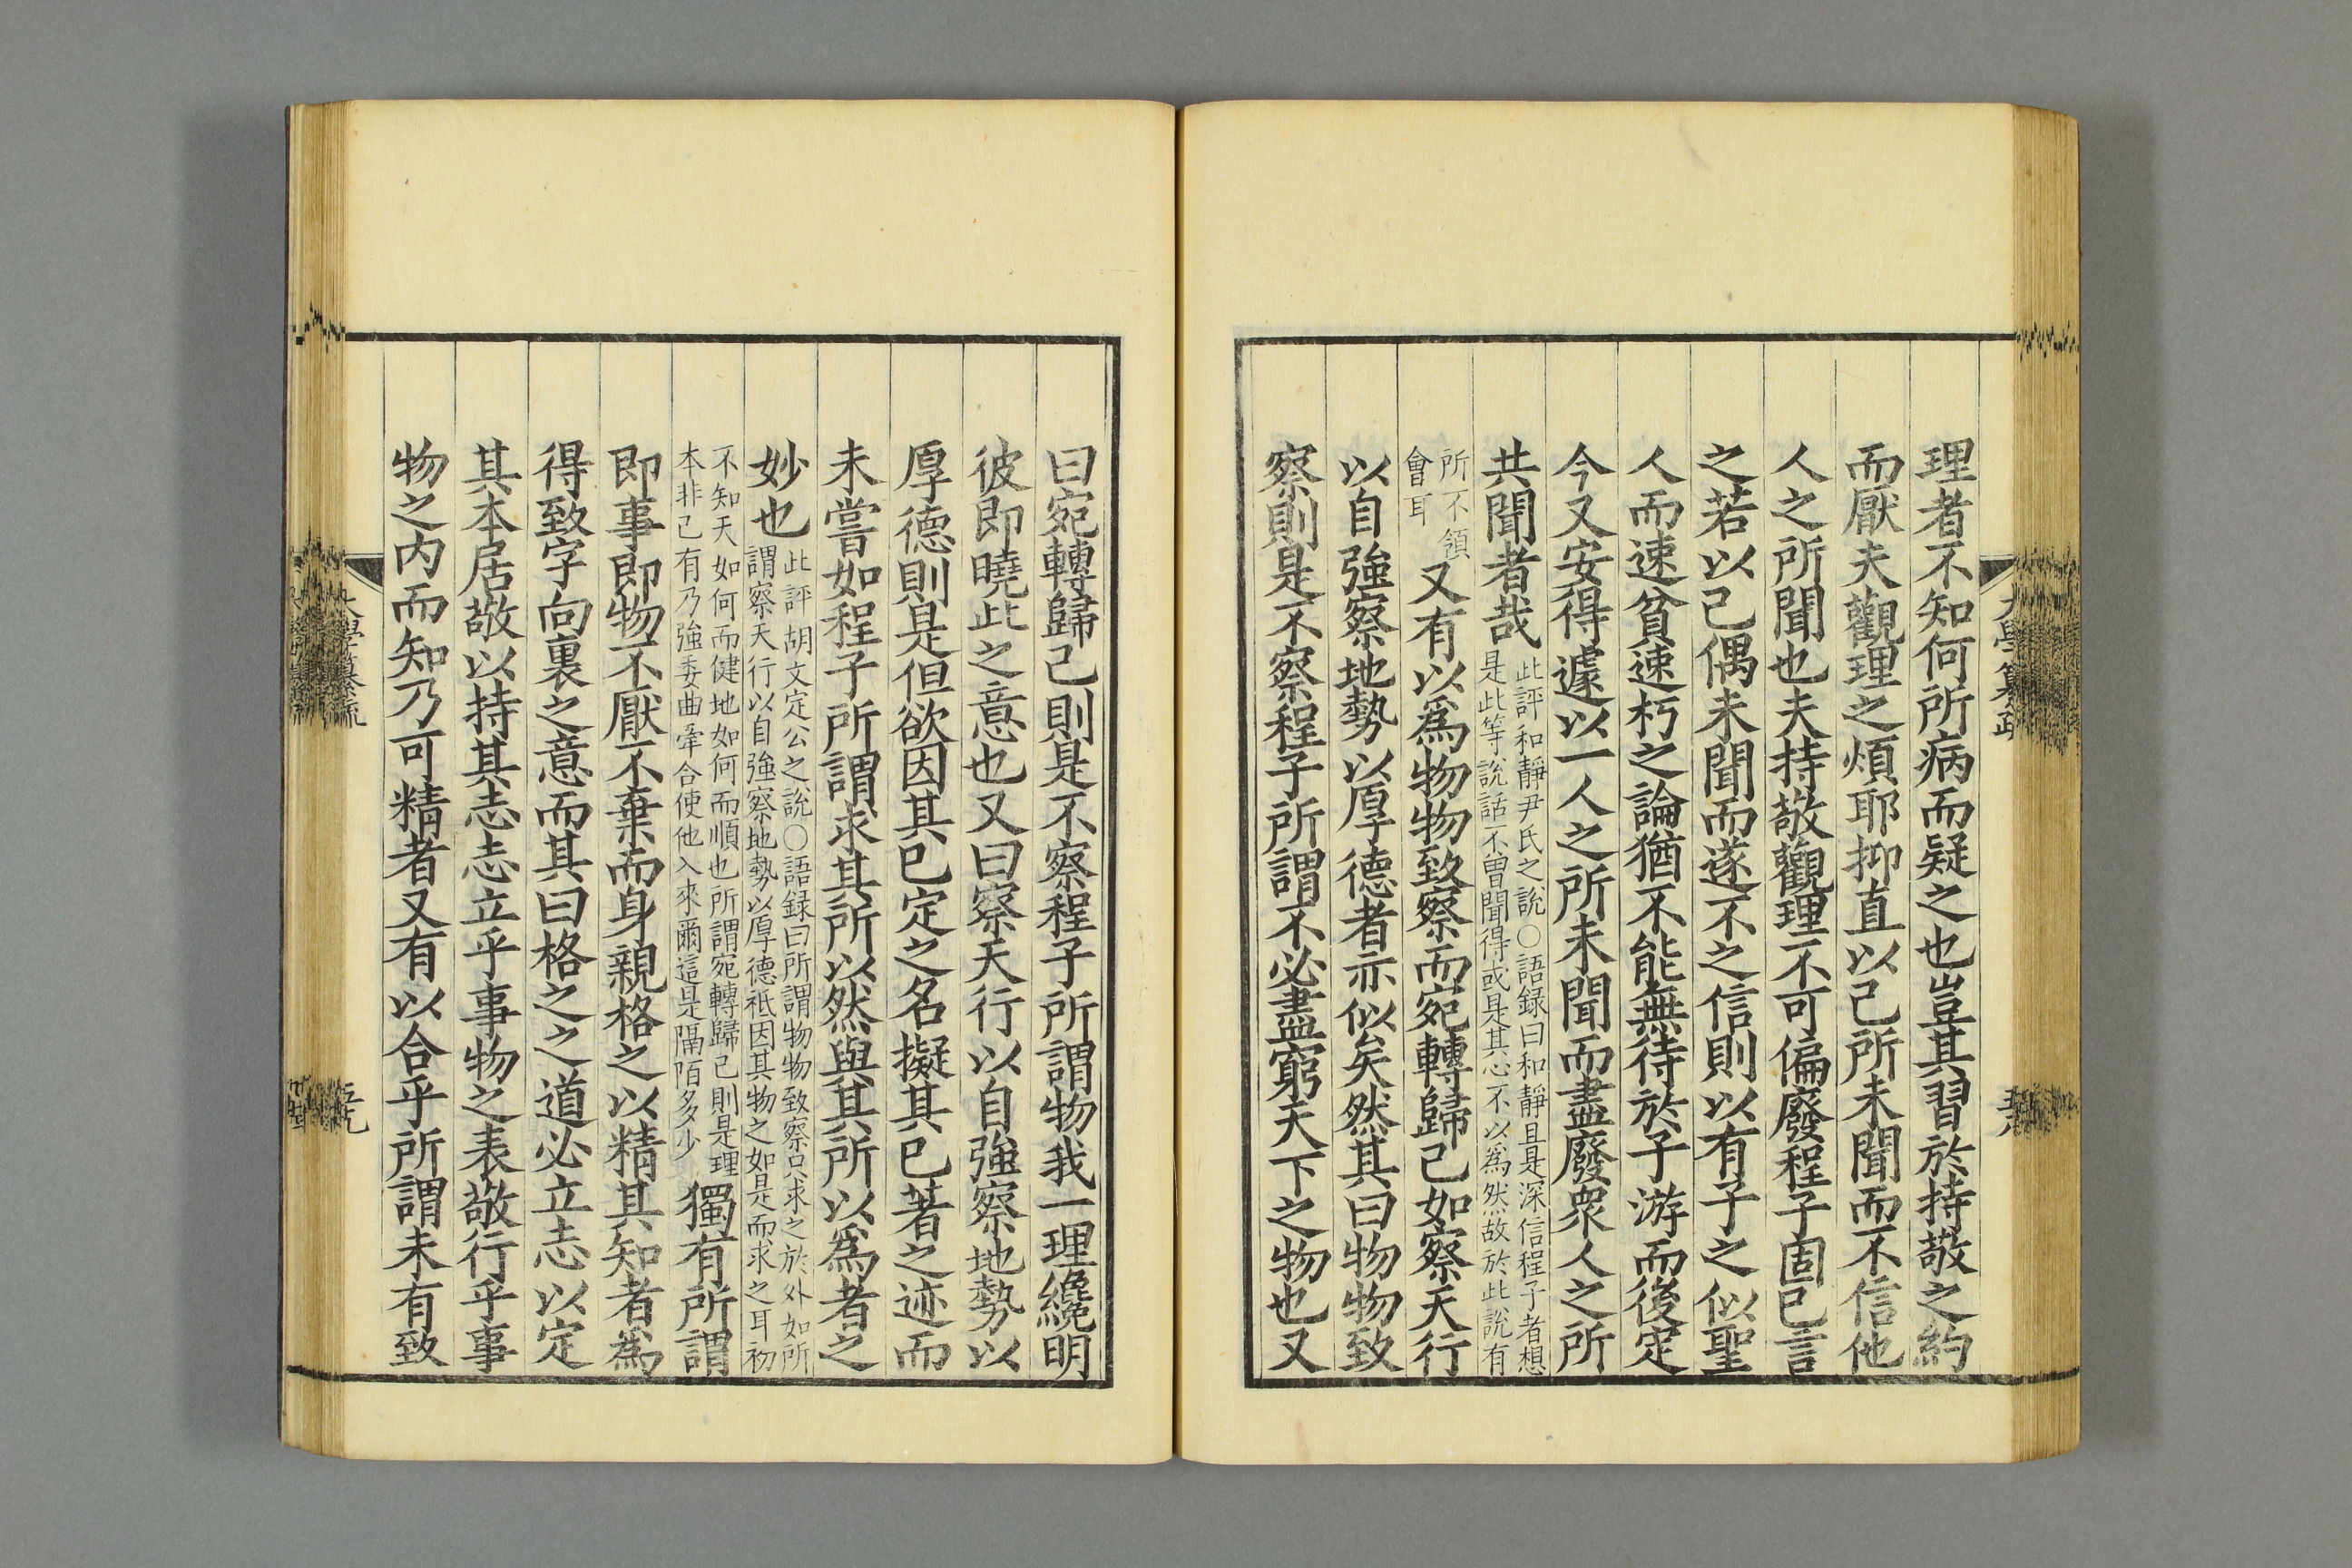 理者不知何所病而疑之也豈其習於持敬之約
而厭夫觀理之煩耶抑直以己所未聞而不信他
人之所聞也夫持敬觀理不可偏廢程子固已言
之若以己偶未聞而遂不之信則以有子之似聖
人而速貧速朽之論猶不能無待於子游而後定
今又安得遽以一人之所未聞而盡廢衆人之所
共聞者哉
此評和靜尹氏之說○語録曰和靜且是深信程子者想
是此等說話不曾聞得或是其心不以爲然故於此說有
所不領
會耳
又有以爲物物致察而宛轉歸己如察天行
以自強察地勢以厚德者亦似矣然其曰物物致
察則是不察程子所謂不必盡窮天下之物也又
大學纂疏
曰宛轉歸己則是不察程子所謂物我一理纔明
彼即曉此之意也又曰察天行以自強察地勢以
厚德則是但欲因其已定之名擬其已著之迹而
未嘗如程子所謂求其所以然與其所以爲者之
妙也
此評胡文定公之說○語録曰所謂物物致察只求之於外如所
謂察天行以自強察地勢以厚德祗因其物之如是而求之耳初
不知天如何而健地如何而順也所謂宛轉歸己則是理
本非己有乃強委曲牽合使他入來爾這是隔陌多少
獨有所謂
即事即物不厭不棄而身親格之以精其知者爲
得致字向裏之意而其曰格之之道必立志以定
其本居敬以持其志志立乎事物之表敬行乎事
物之内而知乃可精者又有以合乎所謂未有致
大學纂疏
五九